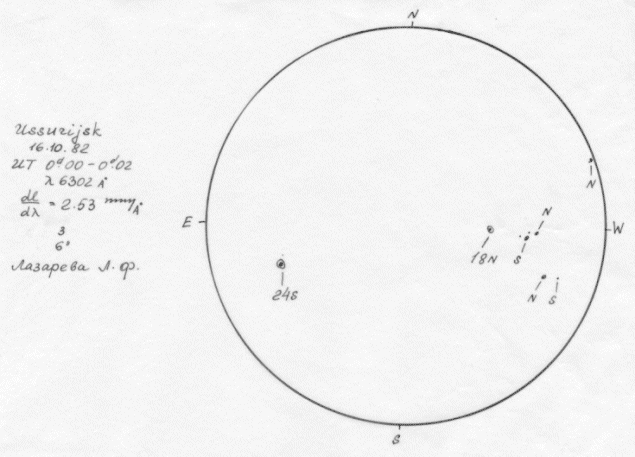 Ussurijsk
16.10.82
UT 0ᵈ00 - 0ᵈ02
λ 6302 Å
dl/dλ = 2.53 mm/Å
3
6"
Лазарева Л. Ф.
N
N
E
W
N
18N
S
24S
N
S
S